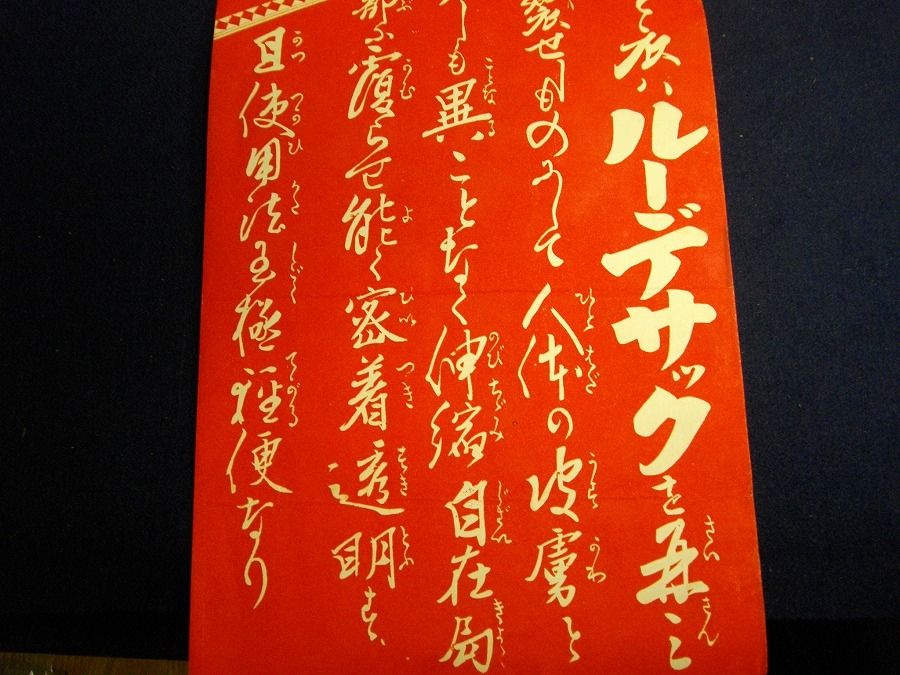 衣ハルーデサックを再三
製せしものにして人体の皮膚と
しも異ことなく伸縮自在局
部に覆らせ能く密着透明す
且使用法至極軽便なり